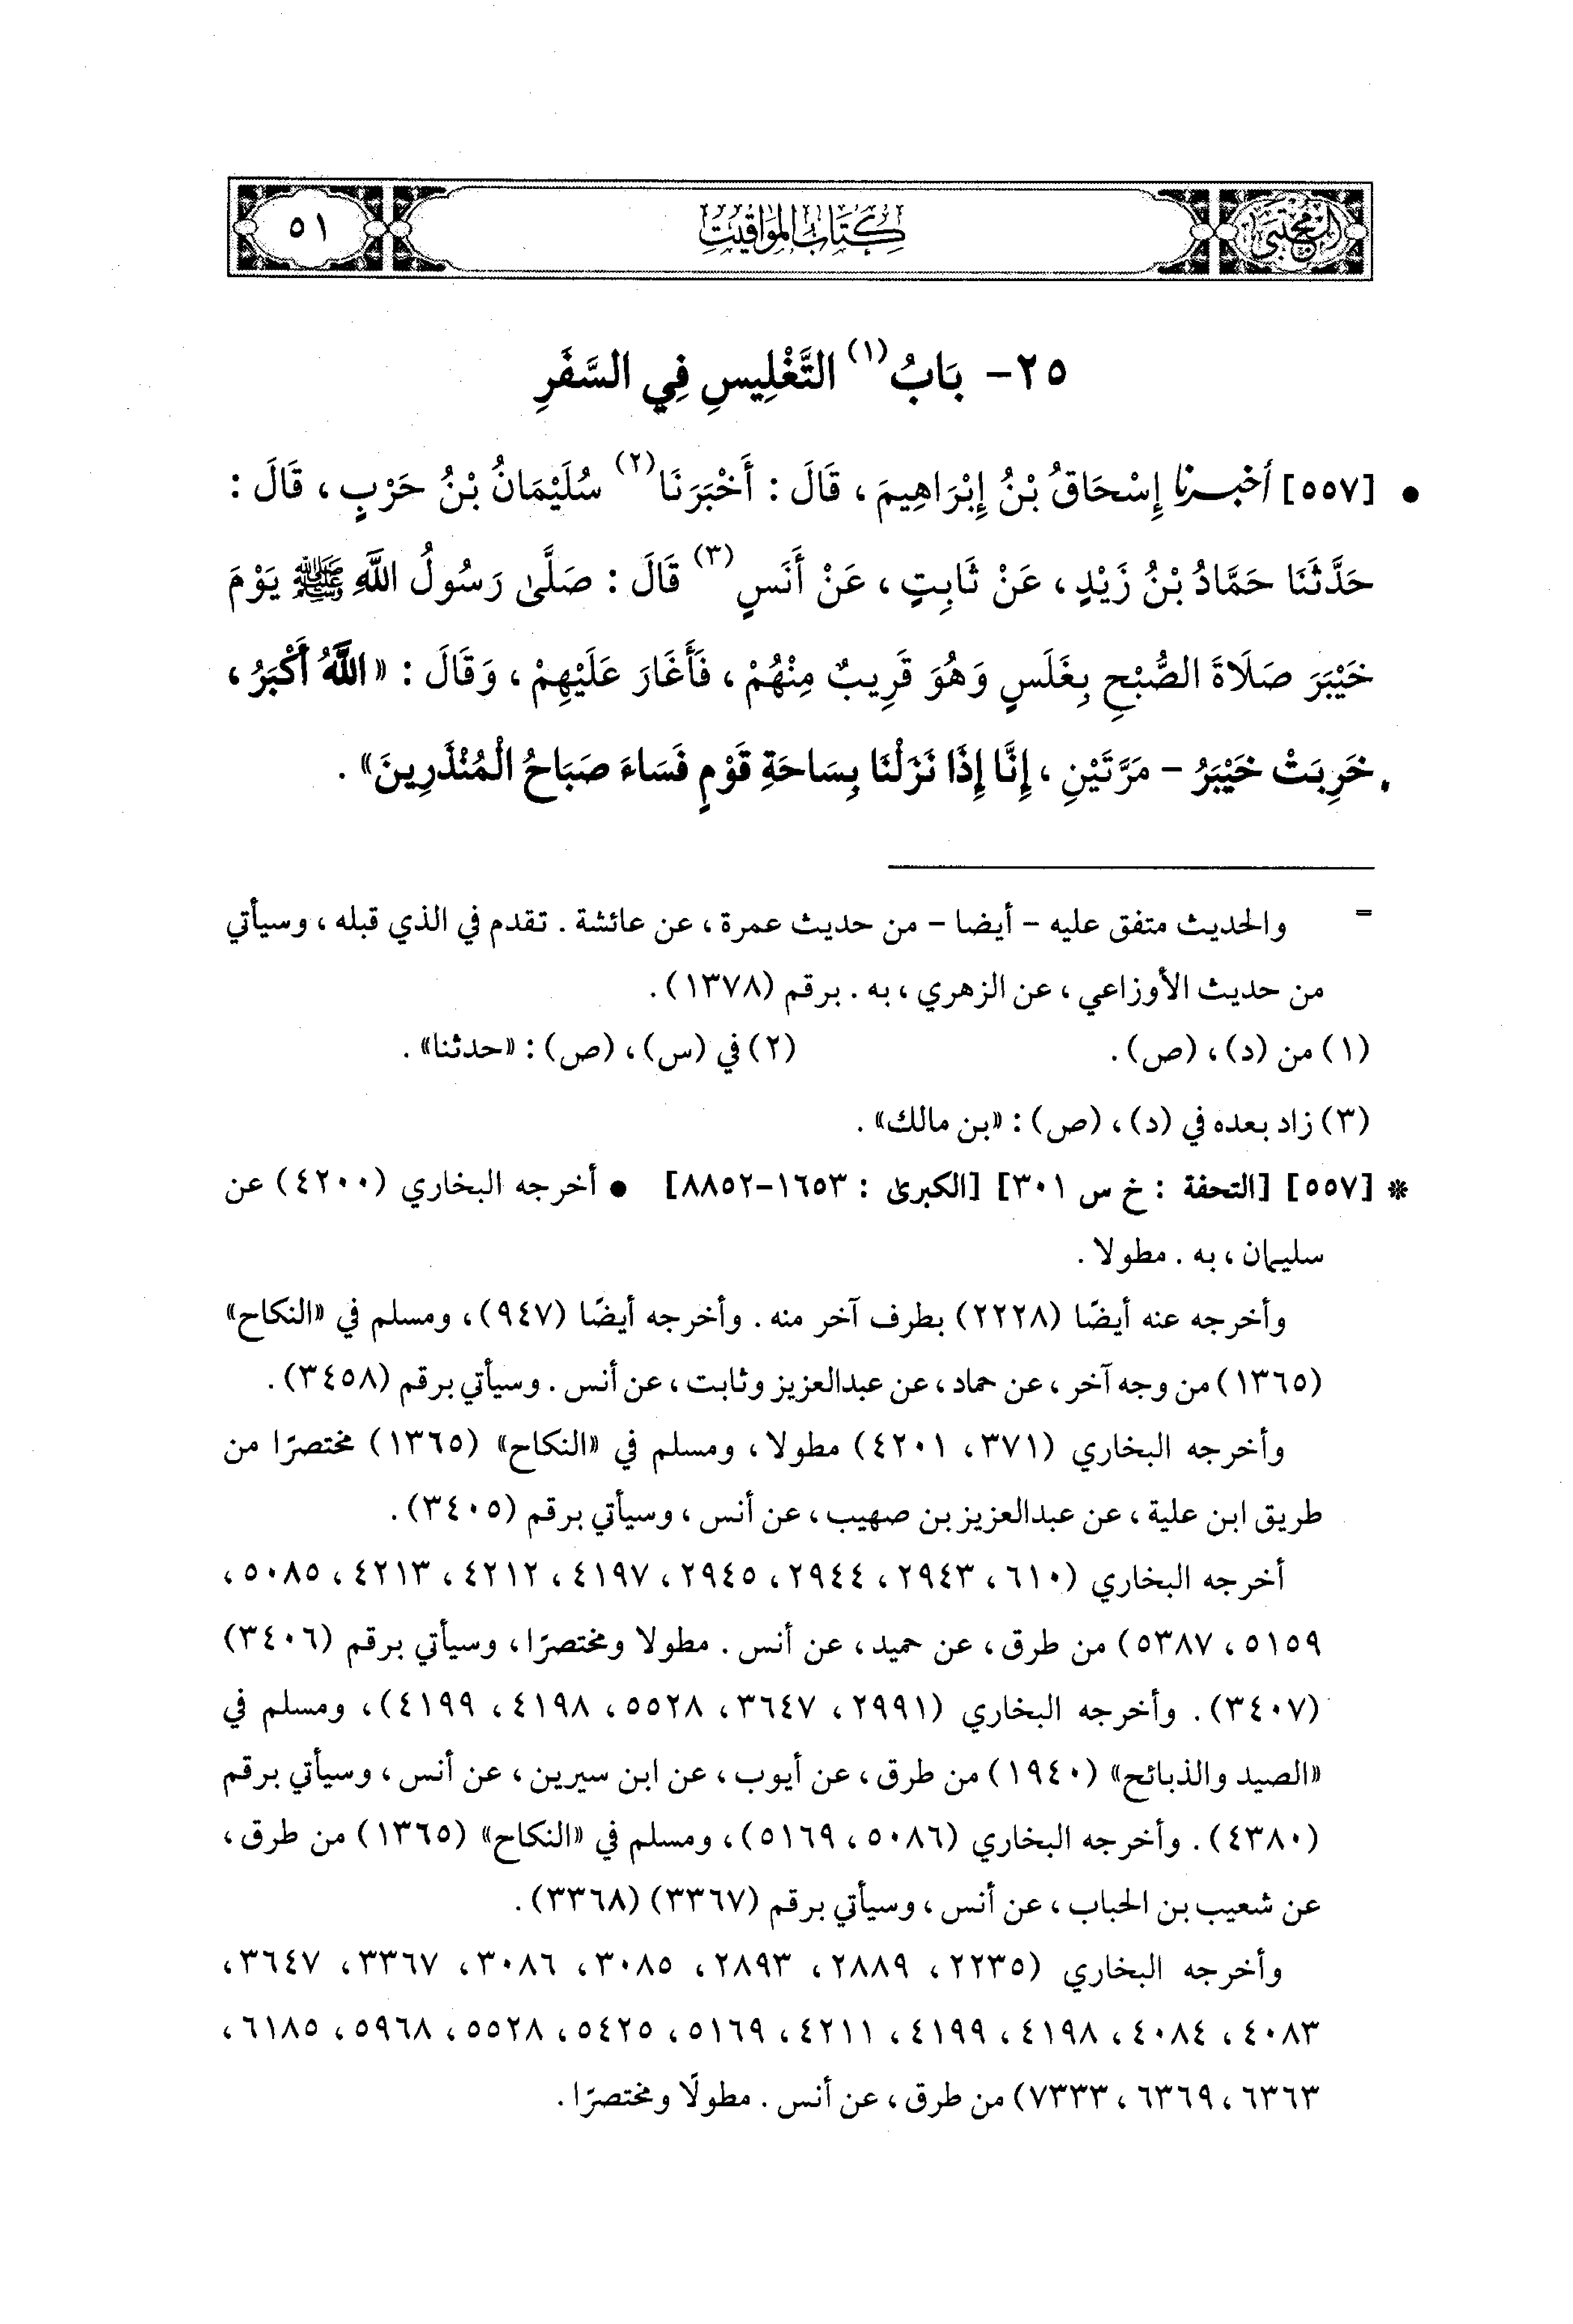 المجتبى
كتاب المواقيت
٥١
٢٥- بَابُ (١) التَّغْلِيسِ فِي السَّفَرِ
• [٥٥٧] أخبرنا إِسْحَاقُ بْنُ إِبْرَاهِيمَ، قَالَ: أَخْبَرَنَا (٢) سُلَيْمَانُ بْنُ حَرْبٍ، قَالَ:
حَدَّثَنَا حَمَّادُ بْنُ زَيْدٍ، عَنْ ثَابِتٍ، عَنْ أَنَسٍ (٣) قَالَ: صَلَّى رَسُولُ اللَّهِ ﷺ يَوْمَ
خَيْبَرَ صَلَاةَ الصُّبْحِ بِغَلَسٍ وَهُوَ قَرِيبٌ مِنْهُمْ، فَأَغَارَ عَلَيْهِمْ، وَقَالَ: «اللَّهُ أَكْبَرُ،
خَرِبَتْ خَيْبَرُ - مَرَّتَيْنِ، إِنَّا إِذَا نَزَلْنَا بِسَاحَةِ قَوْمٍ فَسَاءَ صَبَاحُ الْمُنْذَرِينَ».
= والحديث متفق عليه - أيضا - من حديث عمرة، عن عائشة. تقدم في الذي قبله، وسيأتي
من حديث الأوزاعي، عن الزهري، به. برقم (١٣٧٨).
(١) من (د)، (ص). (٢) في (س)، (ص): «حدثنا».
(٣) زاد بعده في (د)، (ص): «بن مالك».
* [٥٥٧] [التحفة: خ س ٣٠١] [الكبرى: ١٦٥٣-٨٨٥٢] • أخرجه البخاري (٤٢٠٠) عن
سليمان، به. مطولا.
وأخرجه عنه أيضًا (٢٢٢٨) بطرف آخر منه. وأخرجه أيضًا (٩٤٧)، ومسلم في «النكاح»
(١٣٦٥) من وجه آخر، عن حماد، عن عبدالعزيز وثابت، عن أنس. وسيأتي برقم (٣٤٥٨).
وأخرجه البخاري (٣٧١، ٤٢٠١) مطولا، ومسلم في «النكاح» (١٣٦٥) مختصرًا من
طريق ابن علية، عن عبدالعزيز بن صهيب، عن أنس، وسيأتي برقم (٣٤٠٥).
أخرجه البخاري (٦١٠، ٢٩٤٣، ٢٩٤٤، ٢٩٤٥، ٤١٩٧، ٤٢١٢، ٤٢١٣، ٥٠٨٥،
٥١٥٩، ٥٣٨٧) من طرق، عن حميد، عن أنس. مطولا ومختصرًا، وسيأتي برقم (٣٤٠٦)
(٣٤٠٧). وأخرجه البخاري (٢٩٩١، ٣٦٤٧، ٥٥٢٨، ٤١٩٨، ٤١٩٩)، ومسلم في
«الصيد والذبائح» (١٩٤٠) من طرق، عن أيوب، عن ابن سيرين، عن أنس، وسيأتي برقم
(٤٣٨٠). وأخرجه البخاري (٥٠٨٦، ٥١٦٩)، ومسلم في «النكاح» (١٣٦٥) من طرق،
عن شعيب بن الحباب، عن أنس، وسيأتي برقم (٣٣٦٧) (٣٣٦٨).
وأخرجه البخاري (٢٢٣٥، ٢٨٨٩، ٢٨٩٣، ٣٠٨٥، ٣٠٨٦، ٣٣٦٧، ٣٦٤٧،
٤٠٨٣، ٤٠٨٤، ٤١٩٨، ٤١٩٩، ٤٢١١، ٥١٦٩، ٥٤٢٥، ٥٥٢٨، ٥٩٦٨، ٦١٨٥،
٦٣٦٣، ٦٣٦٩، ٧٣٣٣) من طرق، عن أنس. مطولًا ومختصرًا.